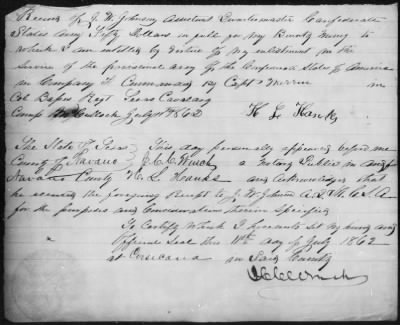 Received of J. W. Johnson Assistant Quartermaster Confederate
States Army Fifty Dollars in full for my Bounty money to
which I am entitled by virtue of my enlistment in the
service of the provisional army of the Confederate States of America
in Company H Commanded by Capt in
Col Regt Texas Cavalry
Camp McCullock July 11th 1862 H L Hanks
The State of Texas This day personally appeared before me
County of Navarro a Notary Public in and for
Navarro County H. L. Hanks and Acknowledges that
he executed the foregoing Receipt to J. W. Johnson A. Q. M. C. S. A
for the purposes and Considerations therein Specified
To Certify Which I hereunto Set my hand and
Official Seal this 11th day of July 1862
at Corsicana in Said County